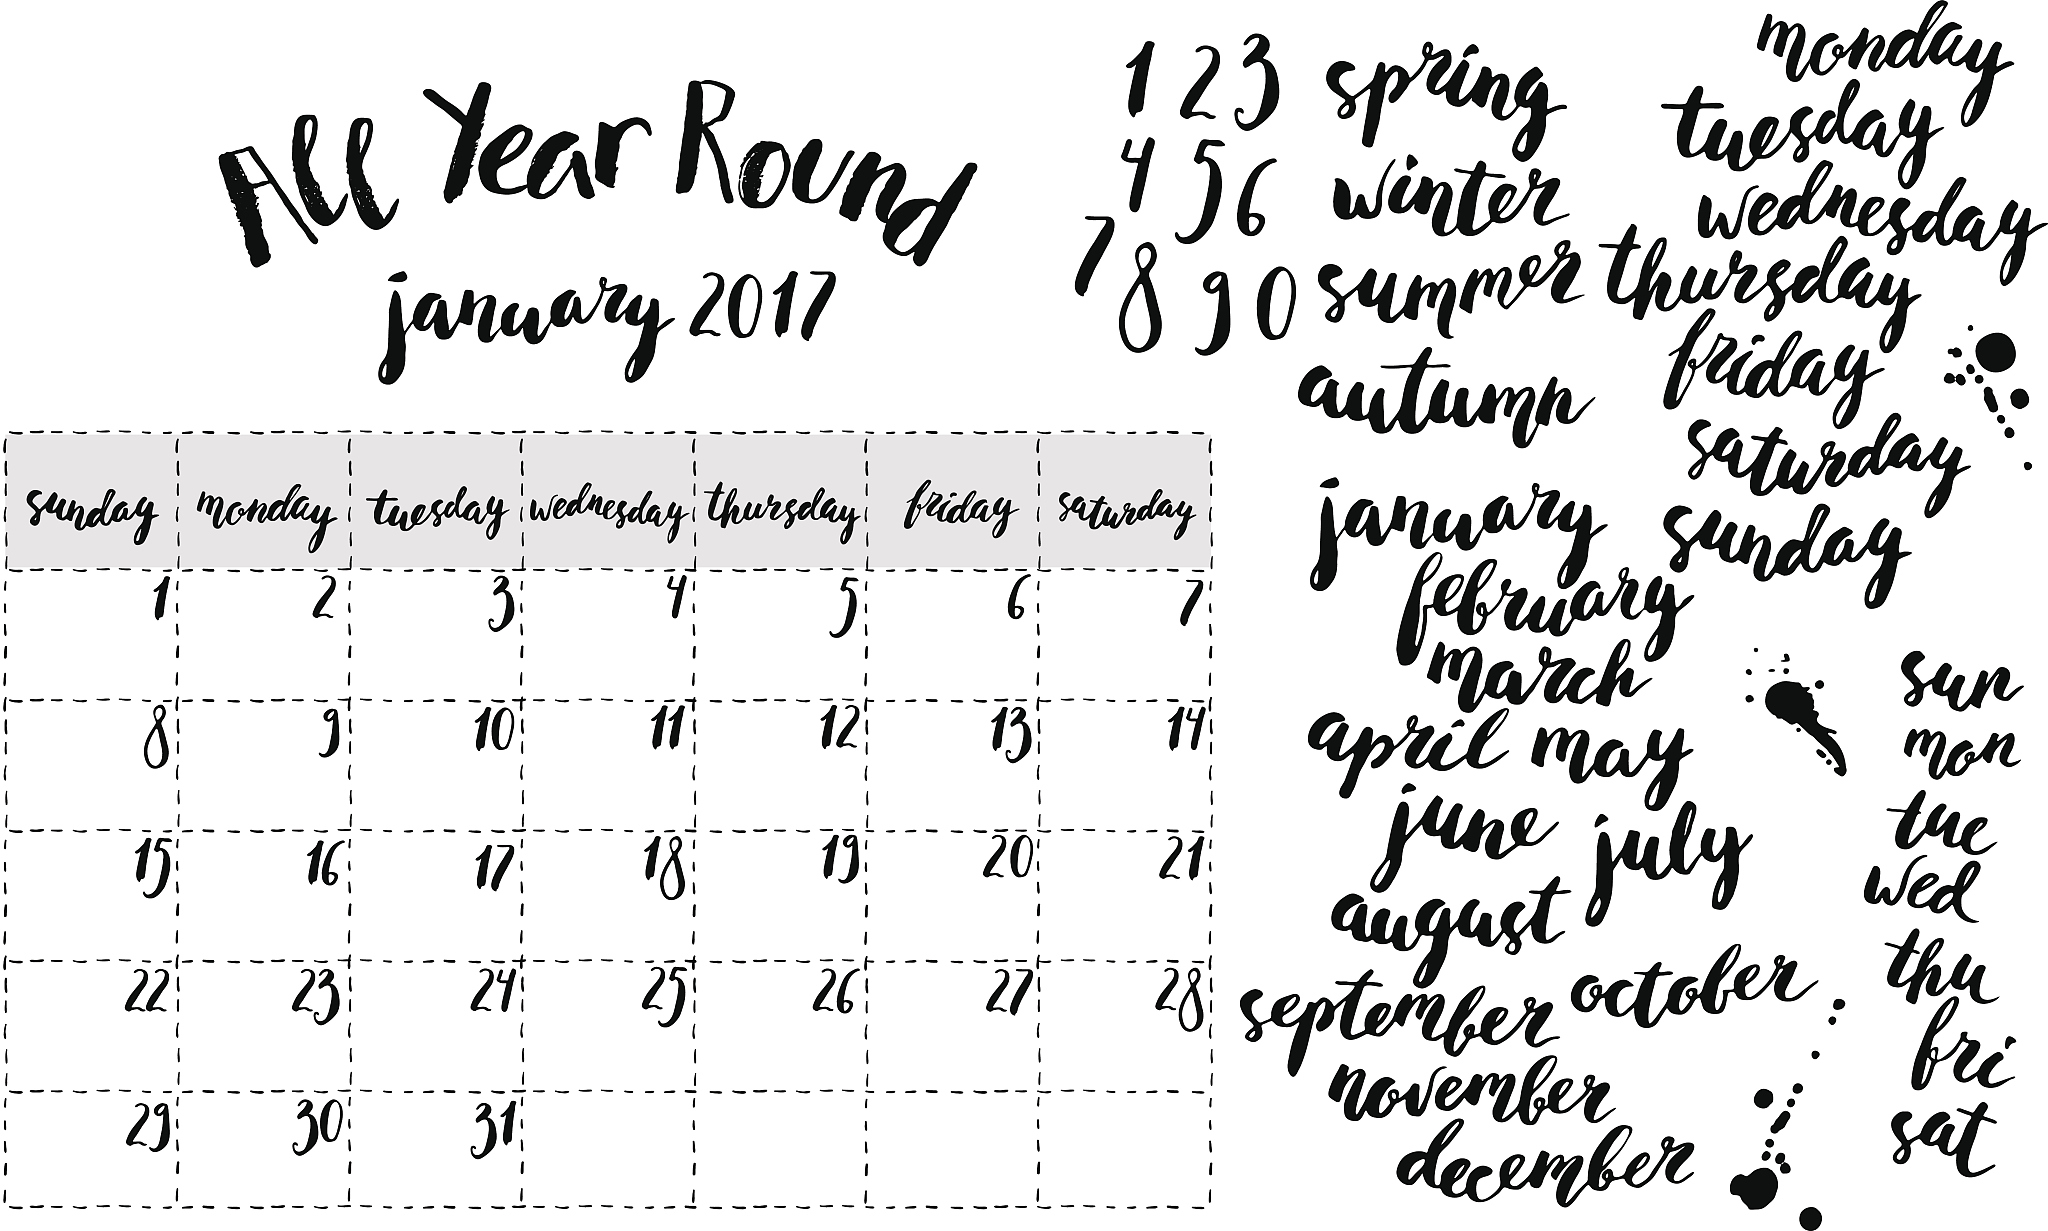 All Year Round
january 2017
sunday monday tuesday wednesday thursday friday saturday
1 2 3 4 5 6 7
8 9 10 11 12 13 14
15 16 17 18 19 20 21
22 23 24 25 26 27 28
29 30 31
1 2 3
4 5 6
7 8 9 0
spring
winter
summer
autumn
monday
tuesday
wednesday
thursday
friday
saturday
sunday
january
february
march
april may
june july
august
september october
november
december
sun
mon
tue
wed
thu
fri
sat